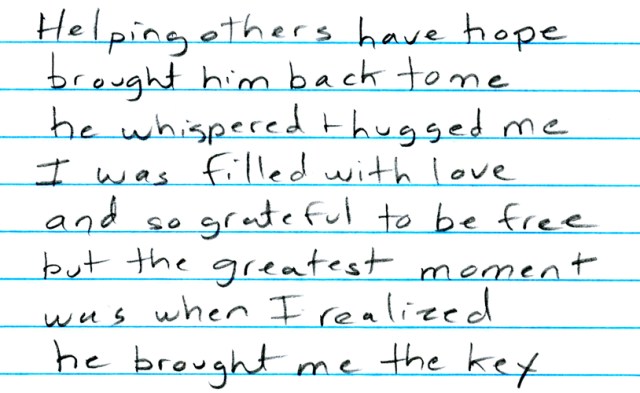 Helping others have hope
brought him back to me
he whispered + hugged me
I was filled with love
and so grateful to be free
but the greatest moment
was when I realized
he brought me the key